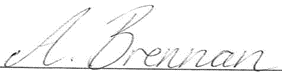 A. Brennan